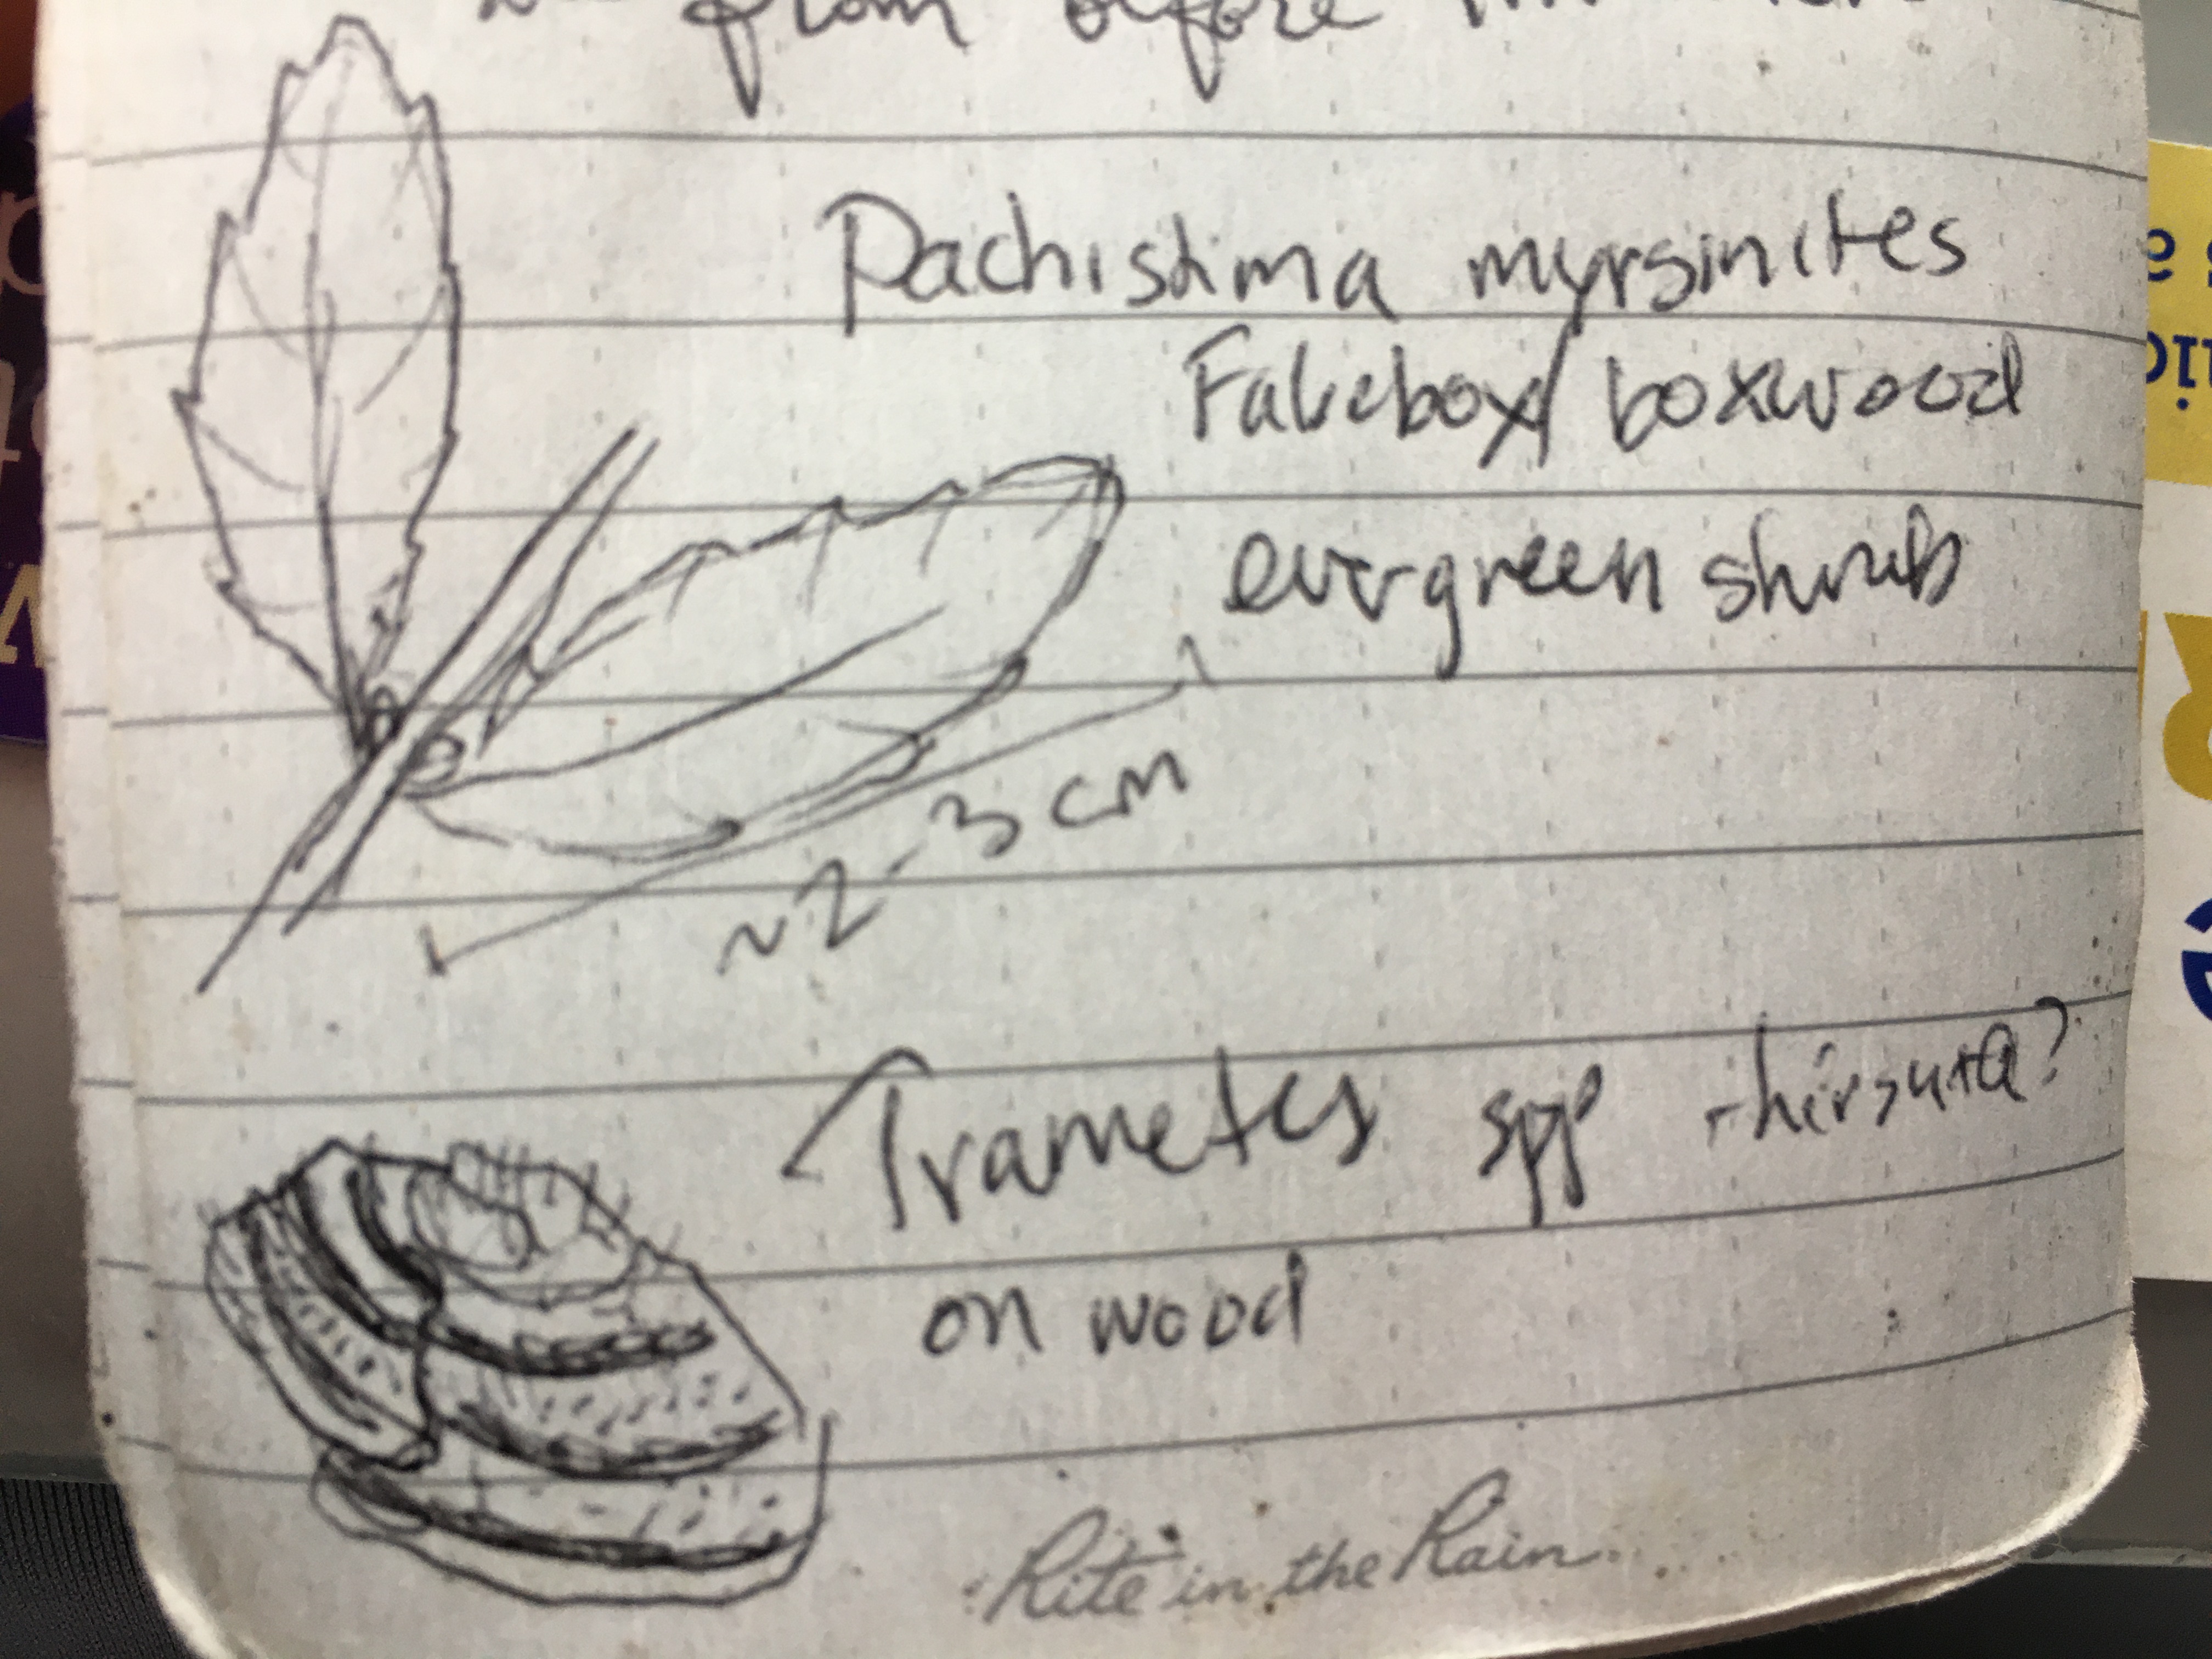 from before
Pachistima myrsinites
Falsebox/ boxwood
evergreen shrub
~2-3 cm
Trametes spp - hirsuta?
on wood
Rite in the Rain